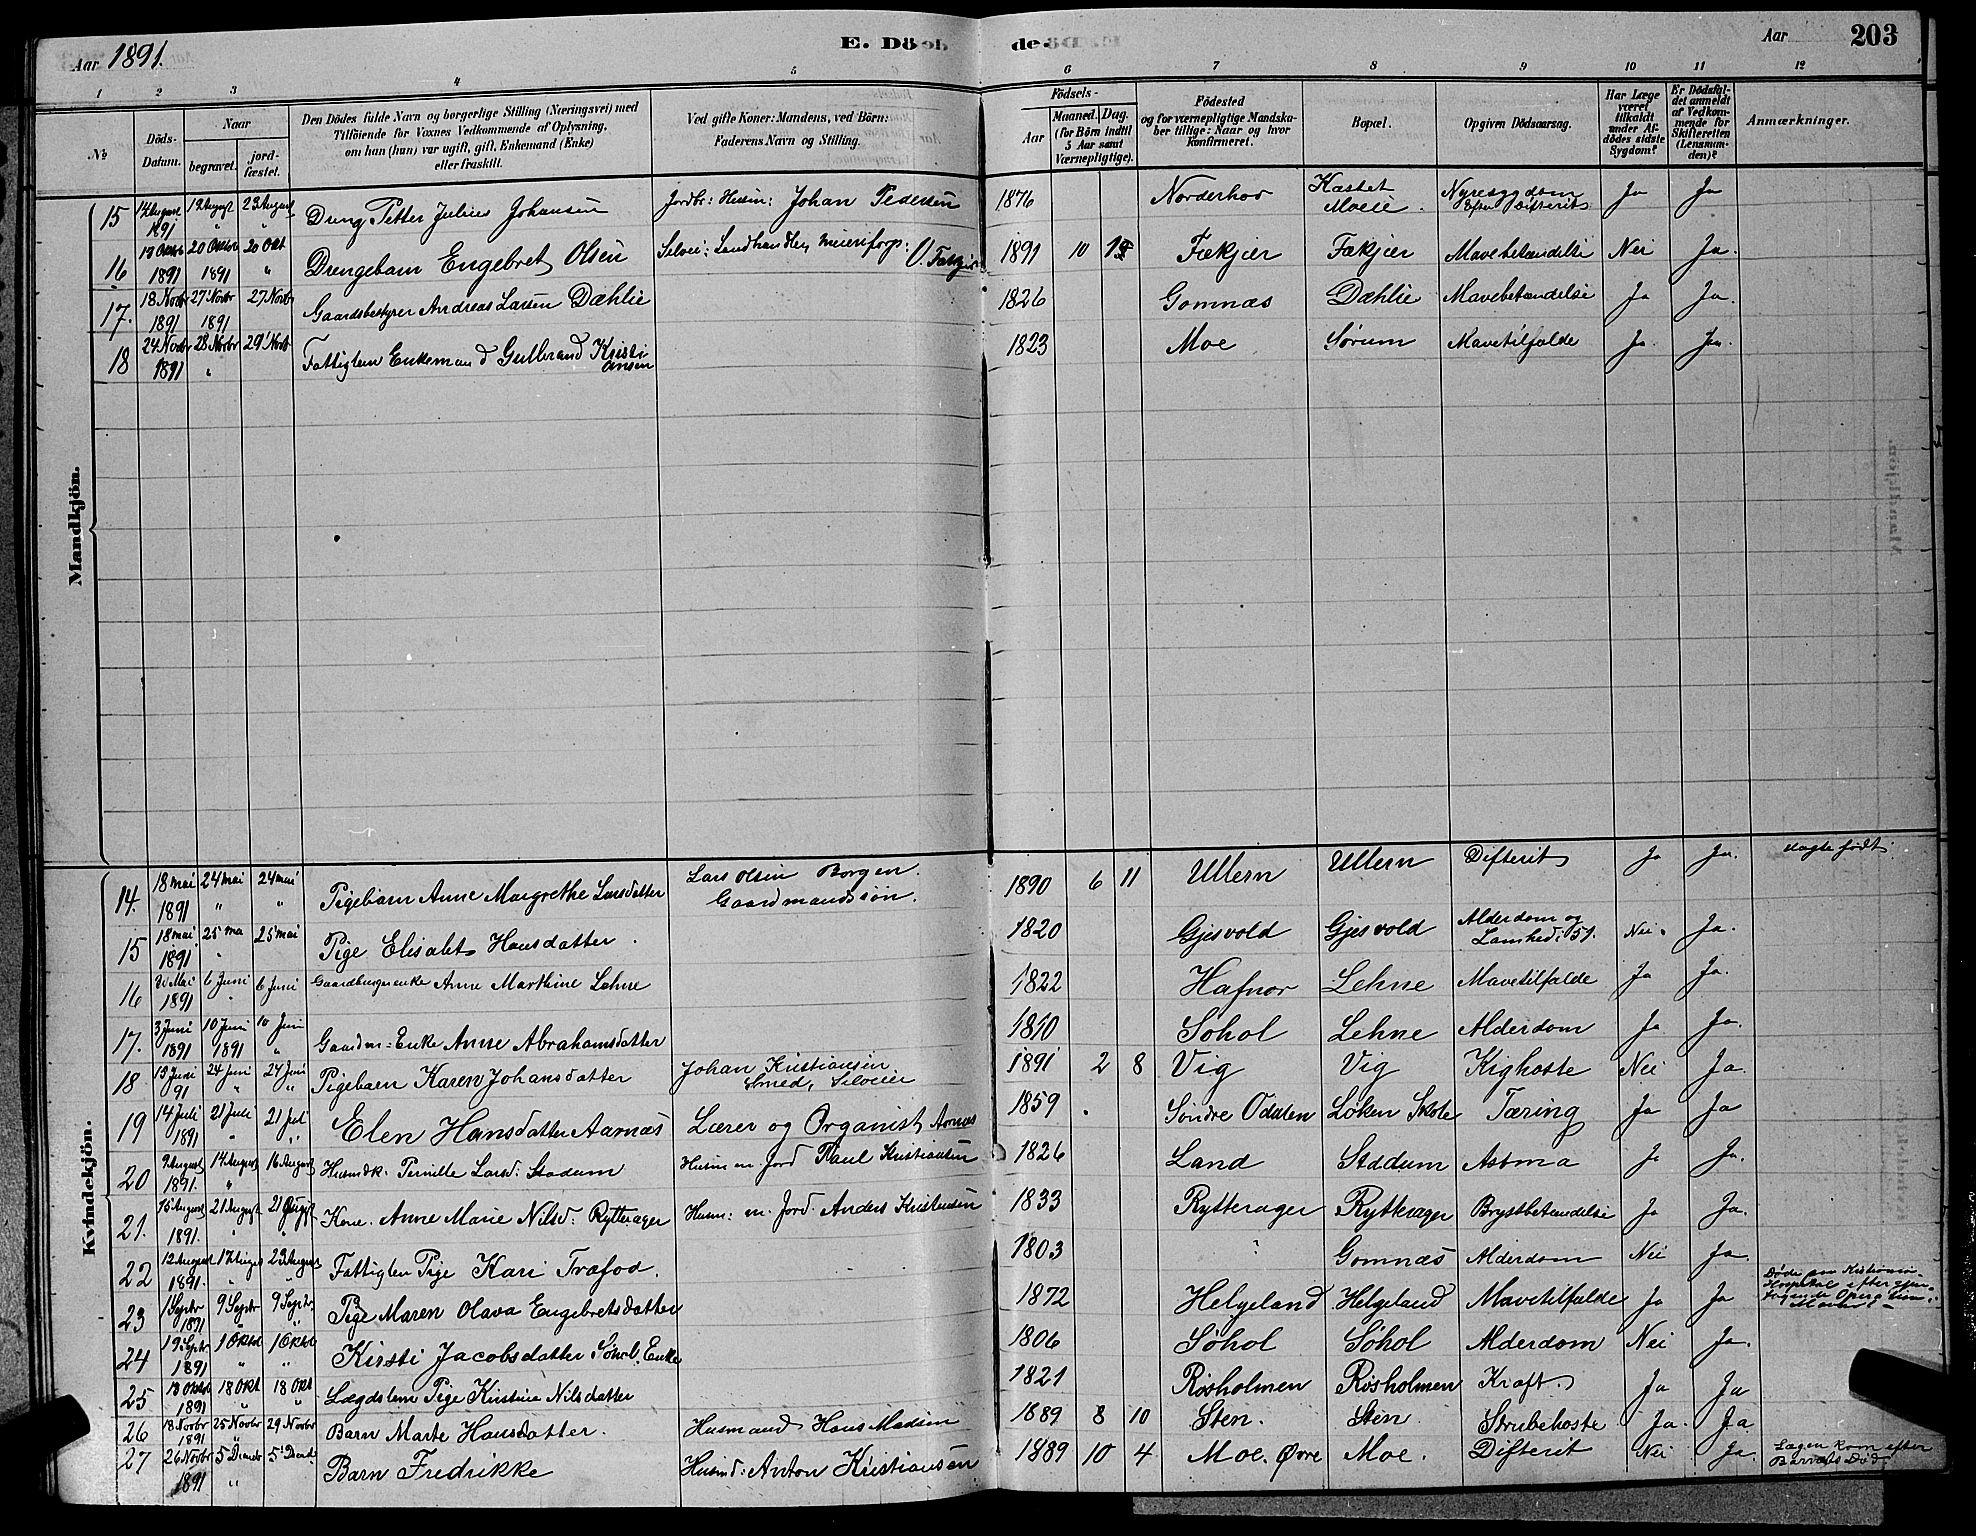 Aar 1891.
E. Döde
Aar
203
1 2 3 4 5 6 7 8 9 10 11 12
No
Döds-Datum.
Naar
begravet.
jordfæstet.
Den Dödes fulde Navn og borgerlige Stilling (Næringsvei) med
Tilföiende for Voxnes Vedkommende af Oplysning,
om han (hun) var ugift, gift, Enkemand (Enke)
eller fraskilt.
Ved gifte Koner: Mandens, ved Börn:
Faderens Navn og Stilling.
Födsels-
Aar
Maaned. Dag.
(for Börn indtil
5 Aar samt
Værnepligtige).
Födested
og for værnepligtige Mandska-
ber tillige: Naar og hvor
konfirmeret.
Bopæl.
Opgiven Dödsaarsag.
Har Læge
været
tilkaldt
under Af-
dödes sidste
Sygdom?
Er Dödsfal-
det anmeldt
af Vedkom-
mende for
Skifteretten
(Lensman-
den)?
Anmærkninger.
Mandkjön.
15 12 August 1891 19 August " 23 August " Dreng Petter Julius Johansen Jordbr: Husm: Johan Pedersen 1876 Norderhov Kastet Moeie. Nyresygdom efter Difterit Ja Ja
16 18 Oktbr 1891 20 Oktbr 1891 20 Okt " Drengebarn Engebret Olsen Selvei: Landhandler, Meieriforp: O. Fækjær 1891 10 Fækjær Fækjær Mavebetændelse Nei Ja.
17. 18 Novbr 1891 27 Novbr 1891 27 Novbr Gaardsbestyrer Andreas Larsen Dæhlie 1826 Gomnæs Dæhlie Mavebetændelse Ja Ja.
18 24 Novbr 1891 28 Novbr " 29 Novb Fattiglem Enkemand Gulbrand Kristiansen 1823 Moe Sørum Mavetilfælde Ja. Ja.
Kvindekjön.
14. 18 mai 1891 24 mai " 24 mai " Pigebarn Anne Margrethe Larsdatter Lars Olsen Borgen. Gaardmandssøn. 1890 6 11 Ullern Ullern Difterit Ja Ja. ægte født.
15 18 mai 1891 25 ma " 25 mai Pige Elisabet Hansdatter. 1820 Gjesvold Gjesvold Alderdom og Lamhed i 51. Nei. Ja.
16 30 Mai 1891 6 Juni " 6 Juni Gaardbrugerenke Anne Marthine Lehne 1822 Hafnor Lehne Mavetilfælde Ja Ja.
17. 3 Juni 1891 10 Juni 1891 10 Juni " Gaardm: Enke Anne Abrahamsdatter 1810 Søhol Lehne Alderdom Ja Ja.
18 19 Juni 91 24 Juni " 24 Juni " Pigebarn Karen Johansdatter Johan Kristiansen Smed, Selveier 1891 2 8 Vig Vig Kighoste Nei Ja.
19 14 Juli 1891 21 Juli " 21 Jul " Elen Hansdatter Aarnæs Lærer og Organist Arnæs 1859 Søndre Odalen Løken Skole Tæring Ja Ja
20 9 August 1891. 14 August " 16 August Husmdk. Pernille Larsd. Stadum Husm m Jord Paul Kristiansen 1826 Land Stadum Astma Ja Ja.
21. 15 August 1891. 21 August " 21 August " Kone. Anne Marie Nilsd. Rytterager Husm: m. Jord. Anders Kristensen 1833 Rytterager Rytterager Brystbetændelse Ja Ja.
22 12 August 1891. 17 August " 23 August " Fattiglem Pige Kari Trafod. 1803 " Gomnæs Alderdom Nei Ja.
23 1 Septr 1891 9 Septr " 9 Septr " Pige Maren Olava Engebretsdatter 1872 Helgeland Helgeland Mavetilfælde Ja Ja Døde paa Kristiania Hospital efter
24 19 Septr 1891 1 Oktbr " 1 Oktbr " Kirsti Jacobsdatter Søhol, Enke 1806 Søhol Søhol Alderdom Nei Ja.
25 13 Oktbr 1891 18 Okt " 18 Okt " Lægdslem Pige Kristine Nilsdatter 1821 Røsholmen Røsholmen Kræft. Ja Ja
26 18 Novbr 1891 25 Novbr " 29 Novbr Barn Marte Hansdatter. Husmand Hans Madsen 1889 8 10 Sten. Sten. Strubehoste Ja. Ja
27 26 Novbr 1891 5 Decmbr " 5 Decmb Barn Fredrikke Husmd: Anton Kristiansen 1889 10 4 Moe. Øvre Moe. Difterit Nei Ja. Lægen kom efter Barnets Død